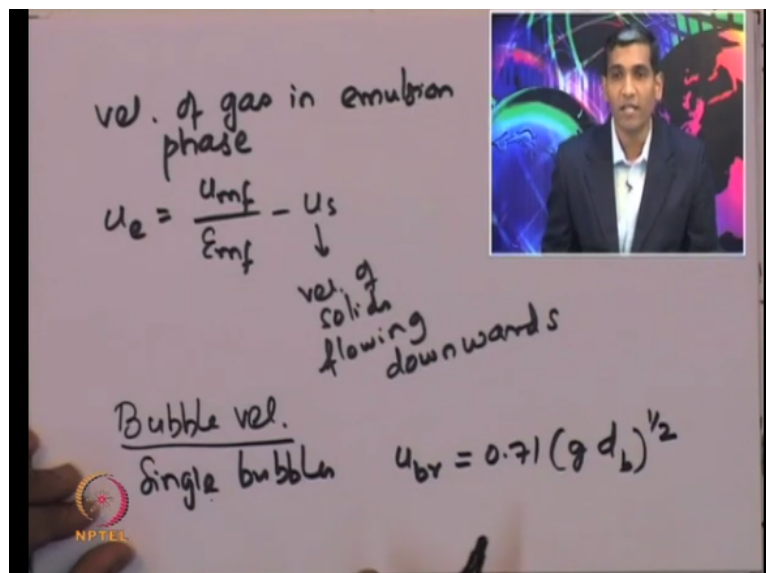 vel. of gas in emulsion
phase
u_e = u_mf / ε_mf - u_s
↓
vel. of
solids
flowing
downwards
Bubble vel.
Single bubbles u_br = 0.71 (g d_b)^1/2
NPTEL